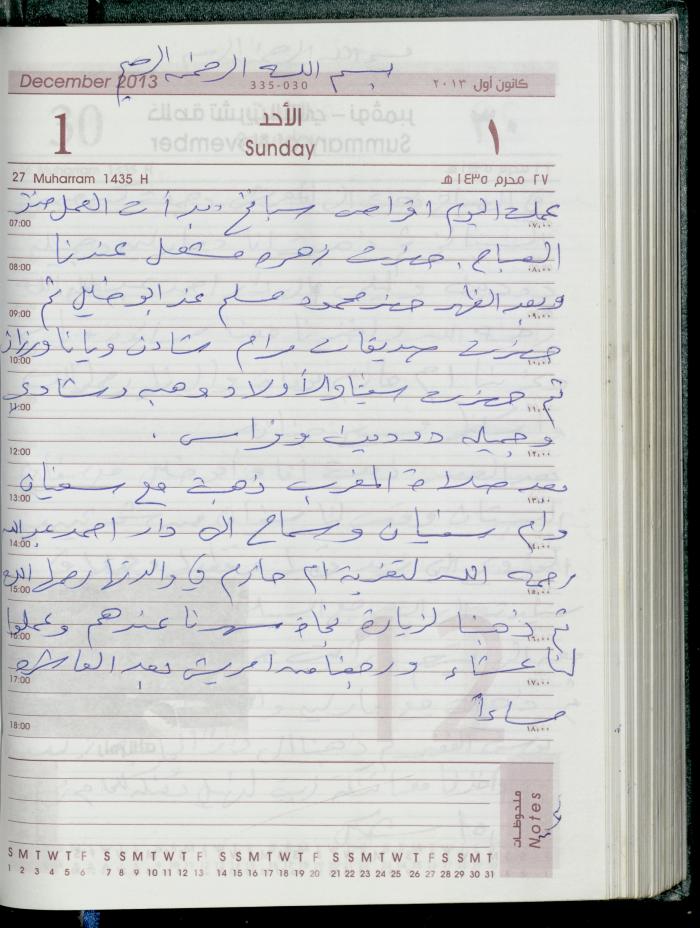 بسم الله الرحمن الرحيم
December 2013
335-030
كانون أول ٢٠١٣
1
الأحد
Sunday
١
27 Muharram 1435 H
٢٧ محرم ١٤٣٥ هـ
عملت اليوم اقراص سبانخ وبدأت العمل منذ
07:00
٠٧,٠٠
الصباح . حضرت زهره مشعل عندنا
08:00
٠٨,٠٠
وبعد الظهر حضر محمود مسلم عند ابو خليل ثم
09:00
٠٩,٠٠
حضرت صديقات مرام شادن ودیانا ورزان
10:00
١٠,٠٠
ثم حضرت والأولاد وهبه وشادي
11:00
١١,٠٠
وجميله ودورين وفراس .
12:00
١٢,٠٠
بعد صلاة المغرب ذهبت مع سفيان
13:00
١٣,٨٠
وام سفيان وسماح الى دار احمد عبدالله
14:00
١٤,٠٠
رحمه الله لتعزية ام حازم في والدتها رحمها الله
15:00
١٥,٠٠
ثم ذهبنا لزيارة نجاة سهرنا عندهم وعملوا
16:00
١٦,٠٠
لنا عشاء ورجعنا بعد العاشره
17:00
١٧,٠٠
مساءاً
18:00
١٨,٠٠
ملحوظات
Notes
S M T W T F S S M T W T F S S M T W T F S S M T W T F S S M T
1 2 3 4 5 6 7 8 9 10 11 12 13 14 15 16 17 18 19 20 21 22 23 24 25 26 27 28 29 30 31